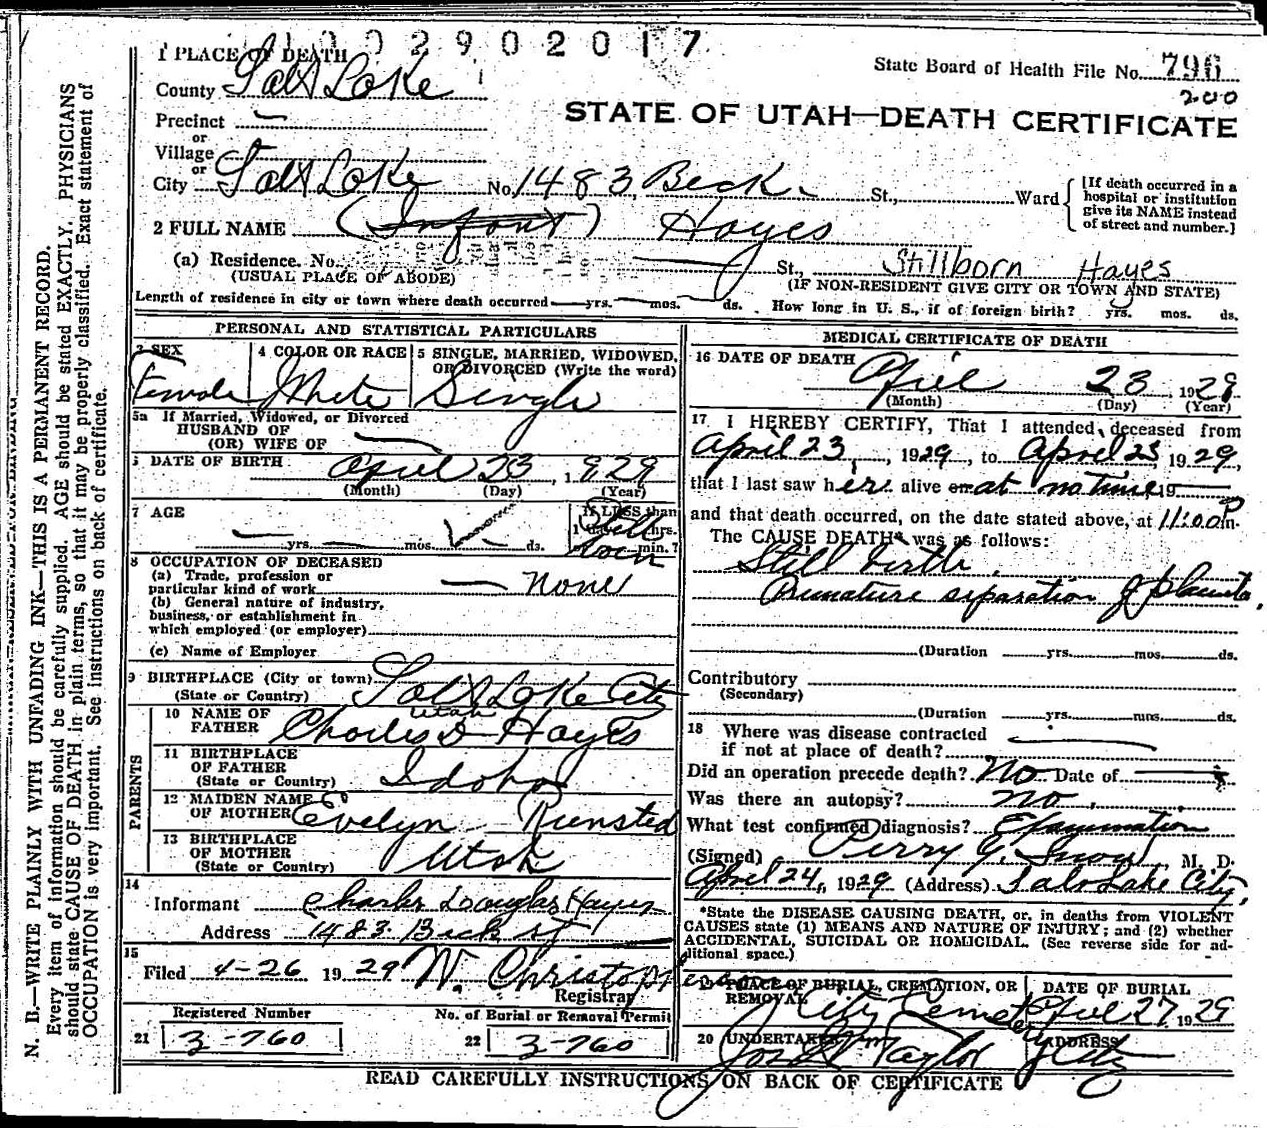 1 0 0 2 9 0 2 0 1 7
1 PLACE OF DEATH
State Board of Health File No. 796
200
County Salt Lake
STATE OF UTAH—DEATH CERTIFICATE
Precinct —
or
Village
or
City Salt Lake No. 1483 Beck St., Ward
[If death occurred in a
hospital or institution
give its NAME instead
of street and number.]
2 FULL NAME (Infant) Hayes
(a) Residence. No. St., Stillborn Hayes
(USUAL PLACE OF ABODE) (IF NON-RESIDENT GIVE CITY OR TOWN AND STATE)
Length of residence in city or town where death occurred yrs. mos. ds. How long in U. S., if of foreign birth? yrs. mos. ds.
PERSONAL AND STATISTICAL PARTICULARS
3 SEX 4 COLOR OR RACE 5 SINGLE, MARRIED, WIDOWED,
OR DIVORCED (Write the word)
Female White Single
5a If Married, Widowed, or Divorced
HUSBAND OF
(OR) WIFE OF —
6 DATE OF BIRTH April 23, 1929
(Month) (Day) (Year)
7 AGE If LESS than
— yrs. — mos. ds. 1 day hrs.
min.?
Still
born
8 OCCUPATION OF DECEASED
(a) Trade, profession or
particular kind of work — none
(b) General nature of industry,
business, or establishment in
which employed (or employer)
(c) Name of Employer
9 BIRTHPLACE (City or town) Salt Lake City
(State or Country) Utah
PARENTS
10 NAME OF
FATHER Charles D Hayes
11 BIRTHPLACE
OF FATHER
(State or Country) Idaho
12 MAIDEN NAME
OF MOTHER Evelyn Runsted
13 BIRTHPLACE
OF MOTHER
(State or Country) Utah
14
Informant Charles Douglas Hayes
Address 1483 Beck st
15
Filed 4-26 1929 W. Christopherson
Registrar
Registered Number No. of Burial or Removal Permit
21 3-760 22 3-760
MEDICAL CERTIFICATE OF DEATH
16 DATE OF DEATH April 23, 1929
(Month) (Day) (Year)
17 I HEREBY CERTIFY, That I attended deceased from
April 23, 1929, to April 23, 1929,
that I last saw her alive on at no time 19
and that death occurred, on the date stated above, at 11:00 P m.
The CAUSE DEATH* was as follows:
Still birth.
Premature separation of placenta.
(Duration yrs. mos. ds.
Contributory
(Secondary)
(Duration yrs. mos. ds.
18 Where was disease contracted
if not at place of death? —
Did an operation precede death? No Date of —
Was there an autopsy? no.
What test confirmed diagnosis? Examination
(Signed) Perry G. Snow, M. D.
April 24, 1929 (Address) Salt Lake City,
*State the DISEASE CAUSING DEATH, or, in deaths from VIOLENT
CAUSES state (1) MEANS AND NATURE OF INJURY; and (2) whether
ACCIDENTAL, SUICIDAL OR HOMICIDAL. (See reverse side for ad-
ditional space.)
19 PLACE OF BURIAL, CREMATION, OR
REMOVAL City Cemetery
DATE OF BURIAL
April 27 1929
20 UNDERTAKER Taylor
ADDRESS City
READ CAREFULLY INSTRUCTIONS ON BACK OF CERTIFICATE
N. B.—WRITE PLAINLY WITH UNFADING INK—THIS IS A PERMANENT RECORD.
Every item of information should be carefully supplied. AGE should be stated EXACTLY. PHYSICIANS
should state CAUSE OF DEATH in plain terms, so that it may be properly classified. Exact statement of
OCCUPATION is very important. See instructions on back of certificate.